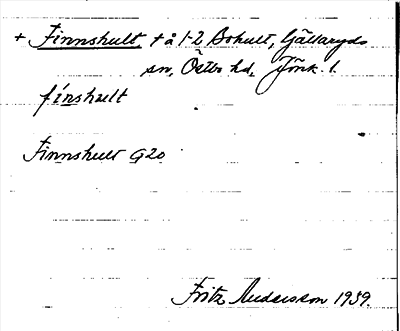 + Finnshult, + å 1-2 Bohult, Gällaryds
sn, Östbo hd, Jönk. l.
fínshult
Finnshult G20
Fritz Andersson 1939.